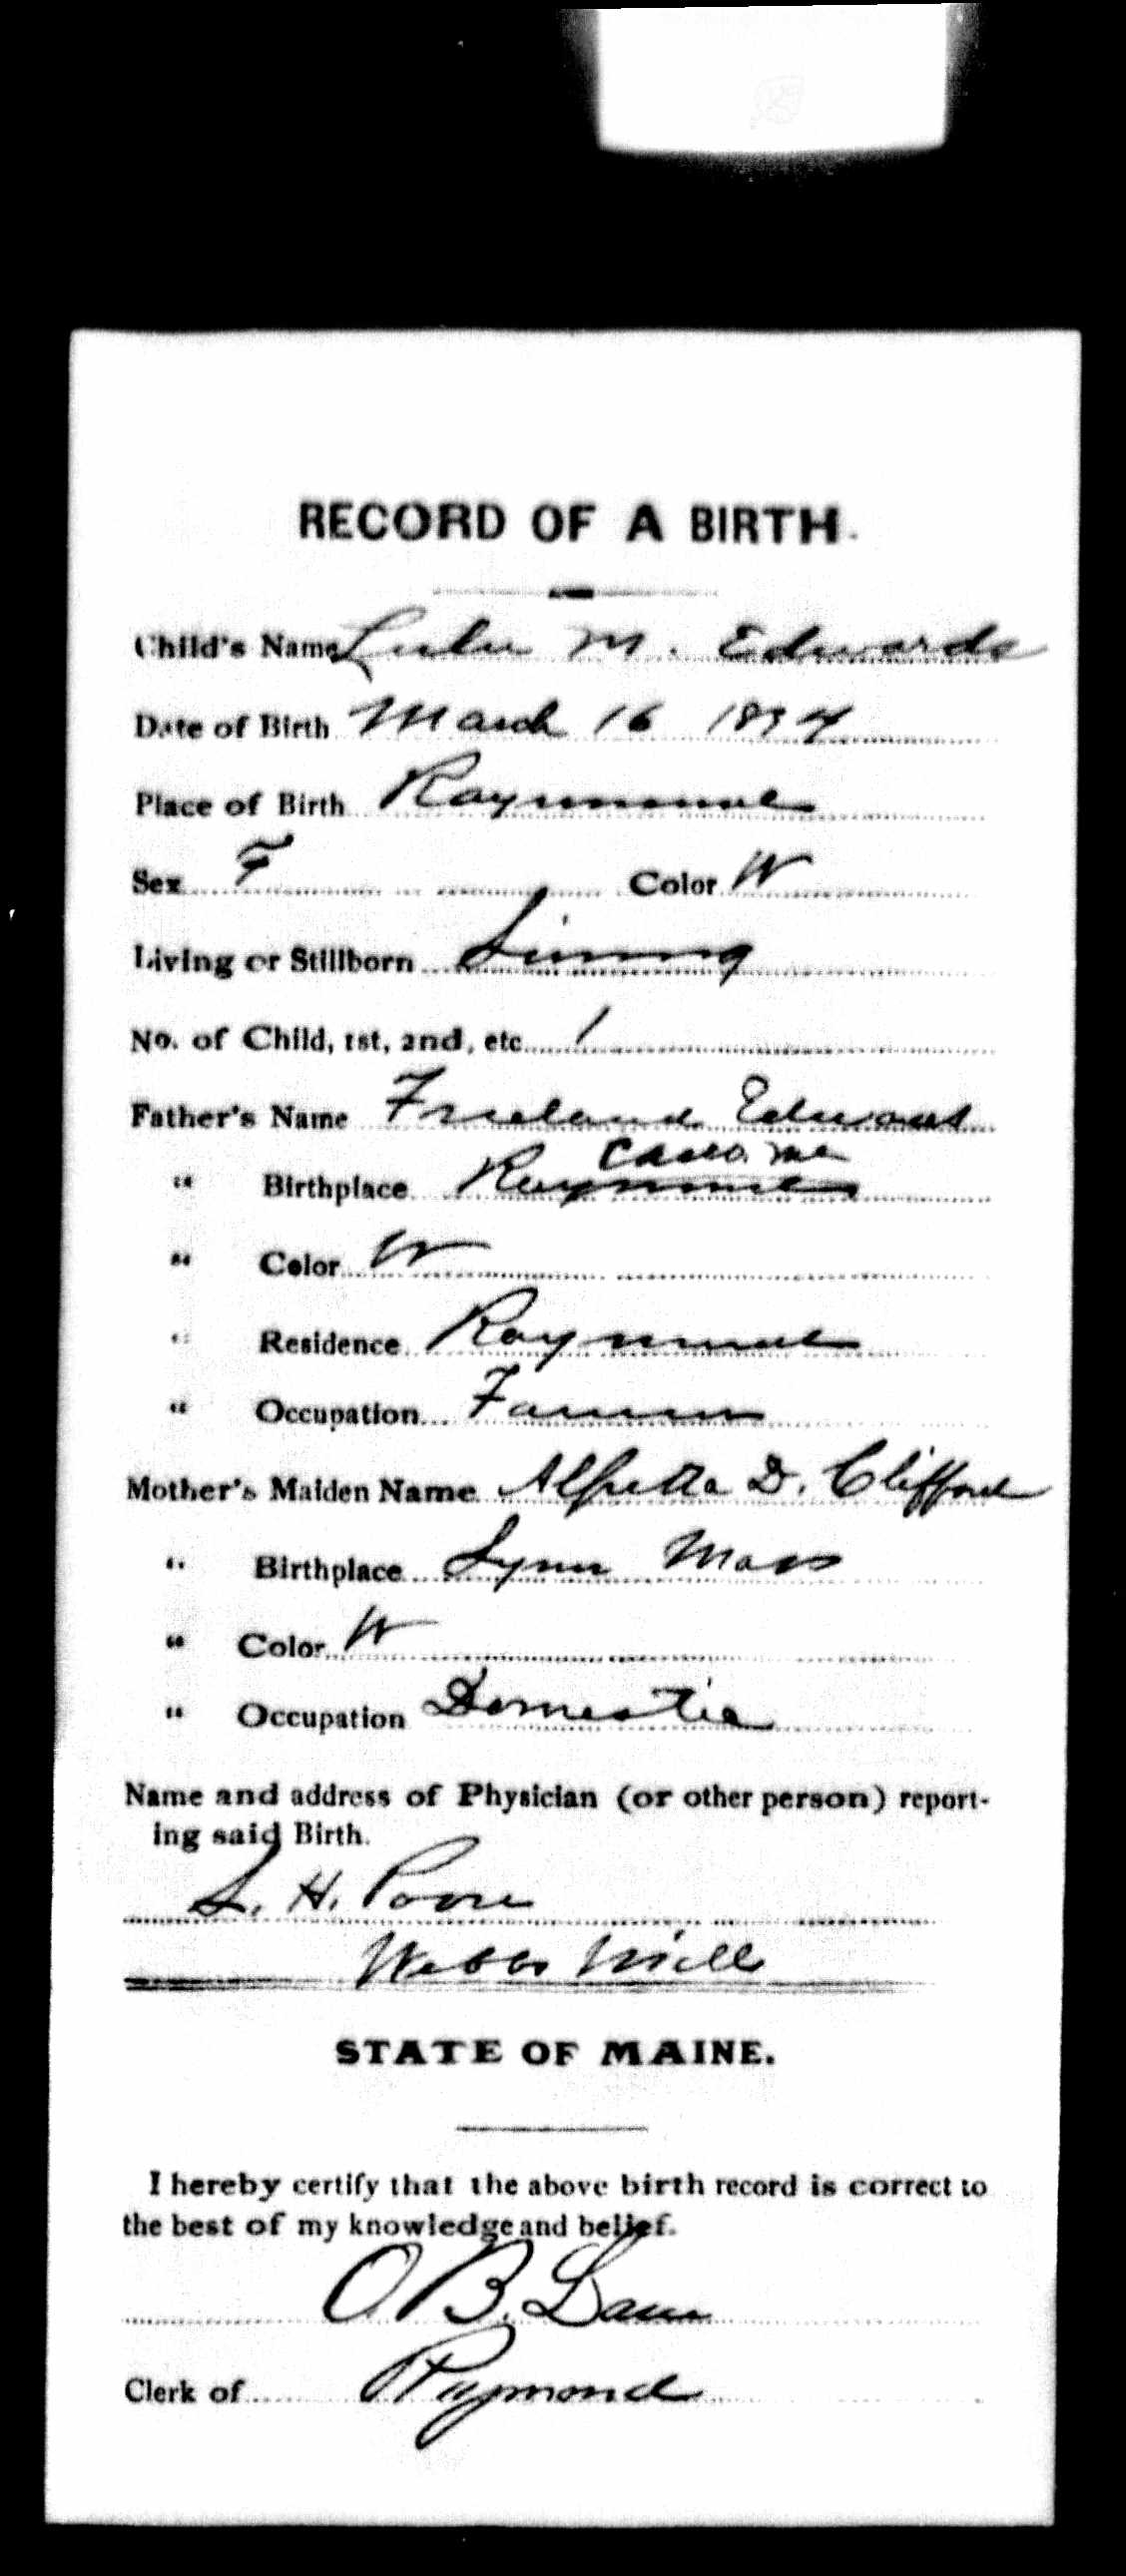 RECORD OF A BIRTH.
Child's Name Lulu M. Edwards
Date of Birth March 16 1894
Place of Birth Raymond
Sex F Color W
Living or Stillborn Living
No. of Child, 1st, 2nd, etc. 1
Father's Name Freeland Edwards
Casco. Me
" Birthplace Raymond
" Color W
" Residence Raymond
" Occupation Farmer
Mother's Maiden Name Alfretta D. Clifford
" Birthplace Lynn Mass
" Color W
" Occupation Domestic
Name and address of Physician (or other person) report-
ing said Birth.
S. H. Poore
Webbs Mills
STATE OF MAINE.
I hereby certify that the above birth record is correct to
the best of my knowledge and belief.
O. B.
Clerk of Raymond